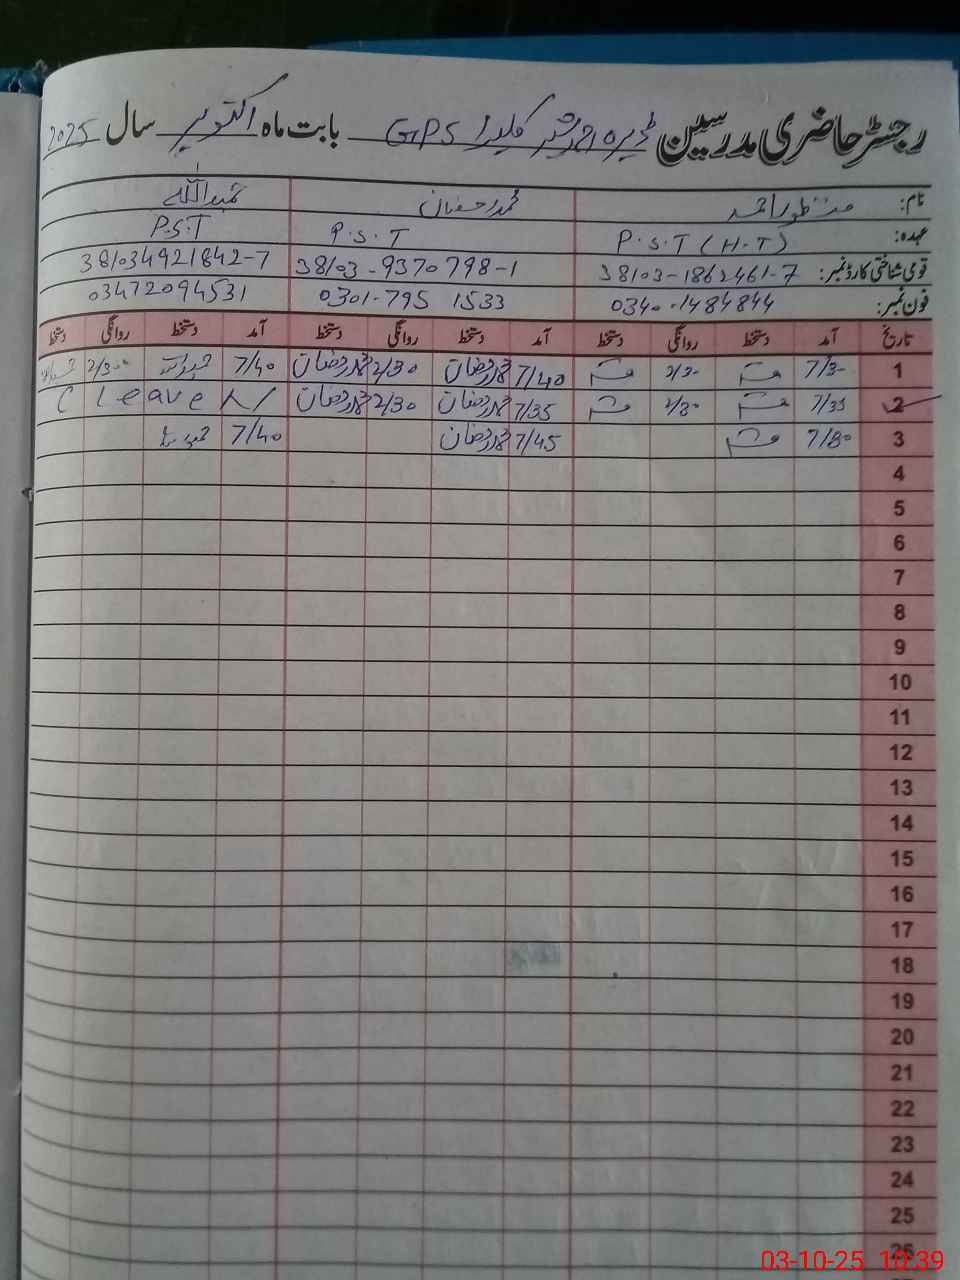 رجسٹر حاضری مدرسین GPS بابت ماہ اکتوبر سال 2025
نام: منظور احمد محمد رمضان عبداللہ
عہدہ: P.S.T (H.T) P.S.T P.S.T
قومی شناختی کارڈ نمبر: 38103-1862461-7 38103-9370798-1 381034921842-7
فون نمبر: 0340-1484844 0301-795 1533 03472094531
تاریخ آمد دستخط روانگی دستخط آمد دستخط روانگی دستخط آمد دستخط روانگی دستخط
1 7/30 2/30 7/40 محمد رمضان 2/30 محمد رمضان 7/40 2/30
2 7/35 2/30 7/35 محمد رمضان 2/30 محمد رمضان Leave
3 7/30 7/45 محمد رمضان 7/40
4
5
6
7
8
9
10
11
12
13
14
15
16
17
18
19
20
21
22
23
24
25
26
03-10-25 10:39